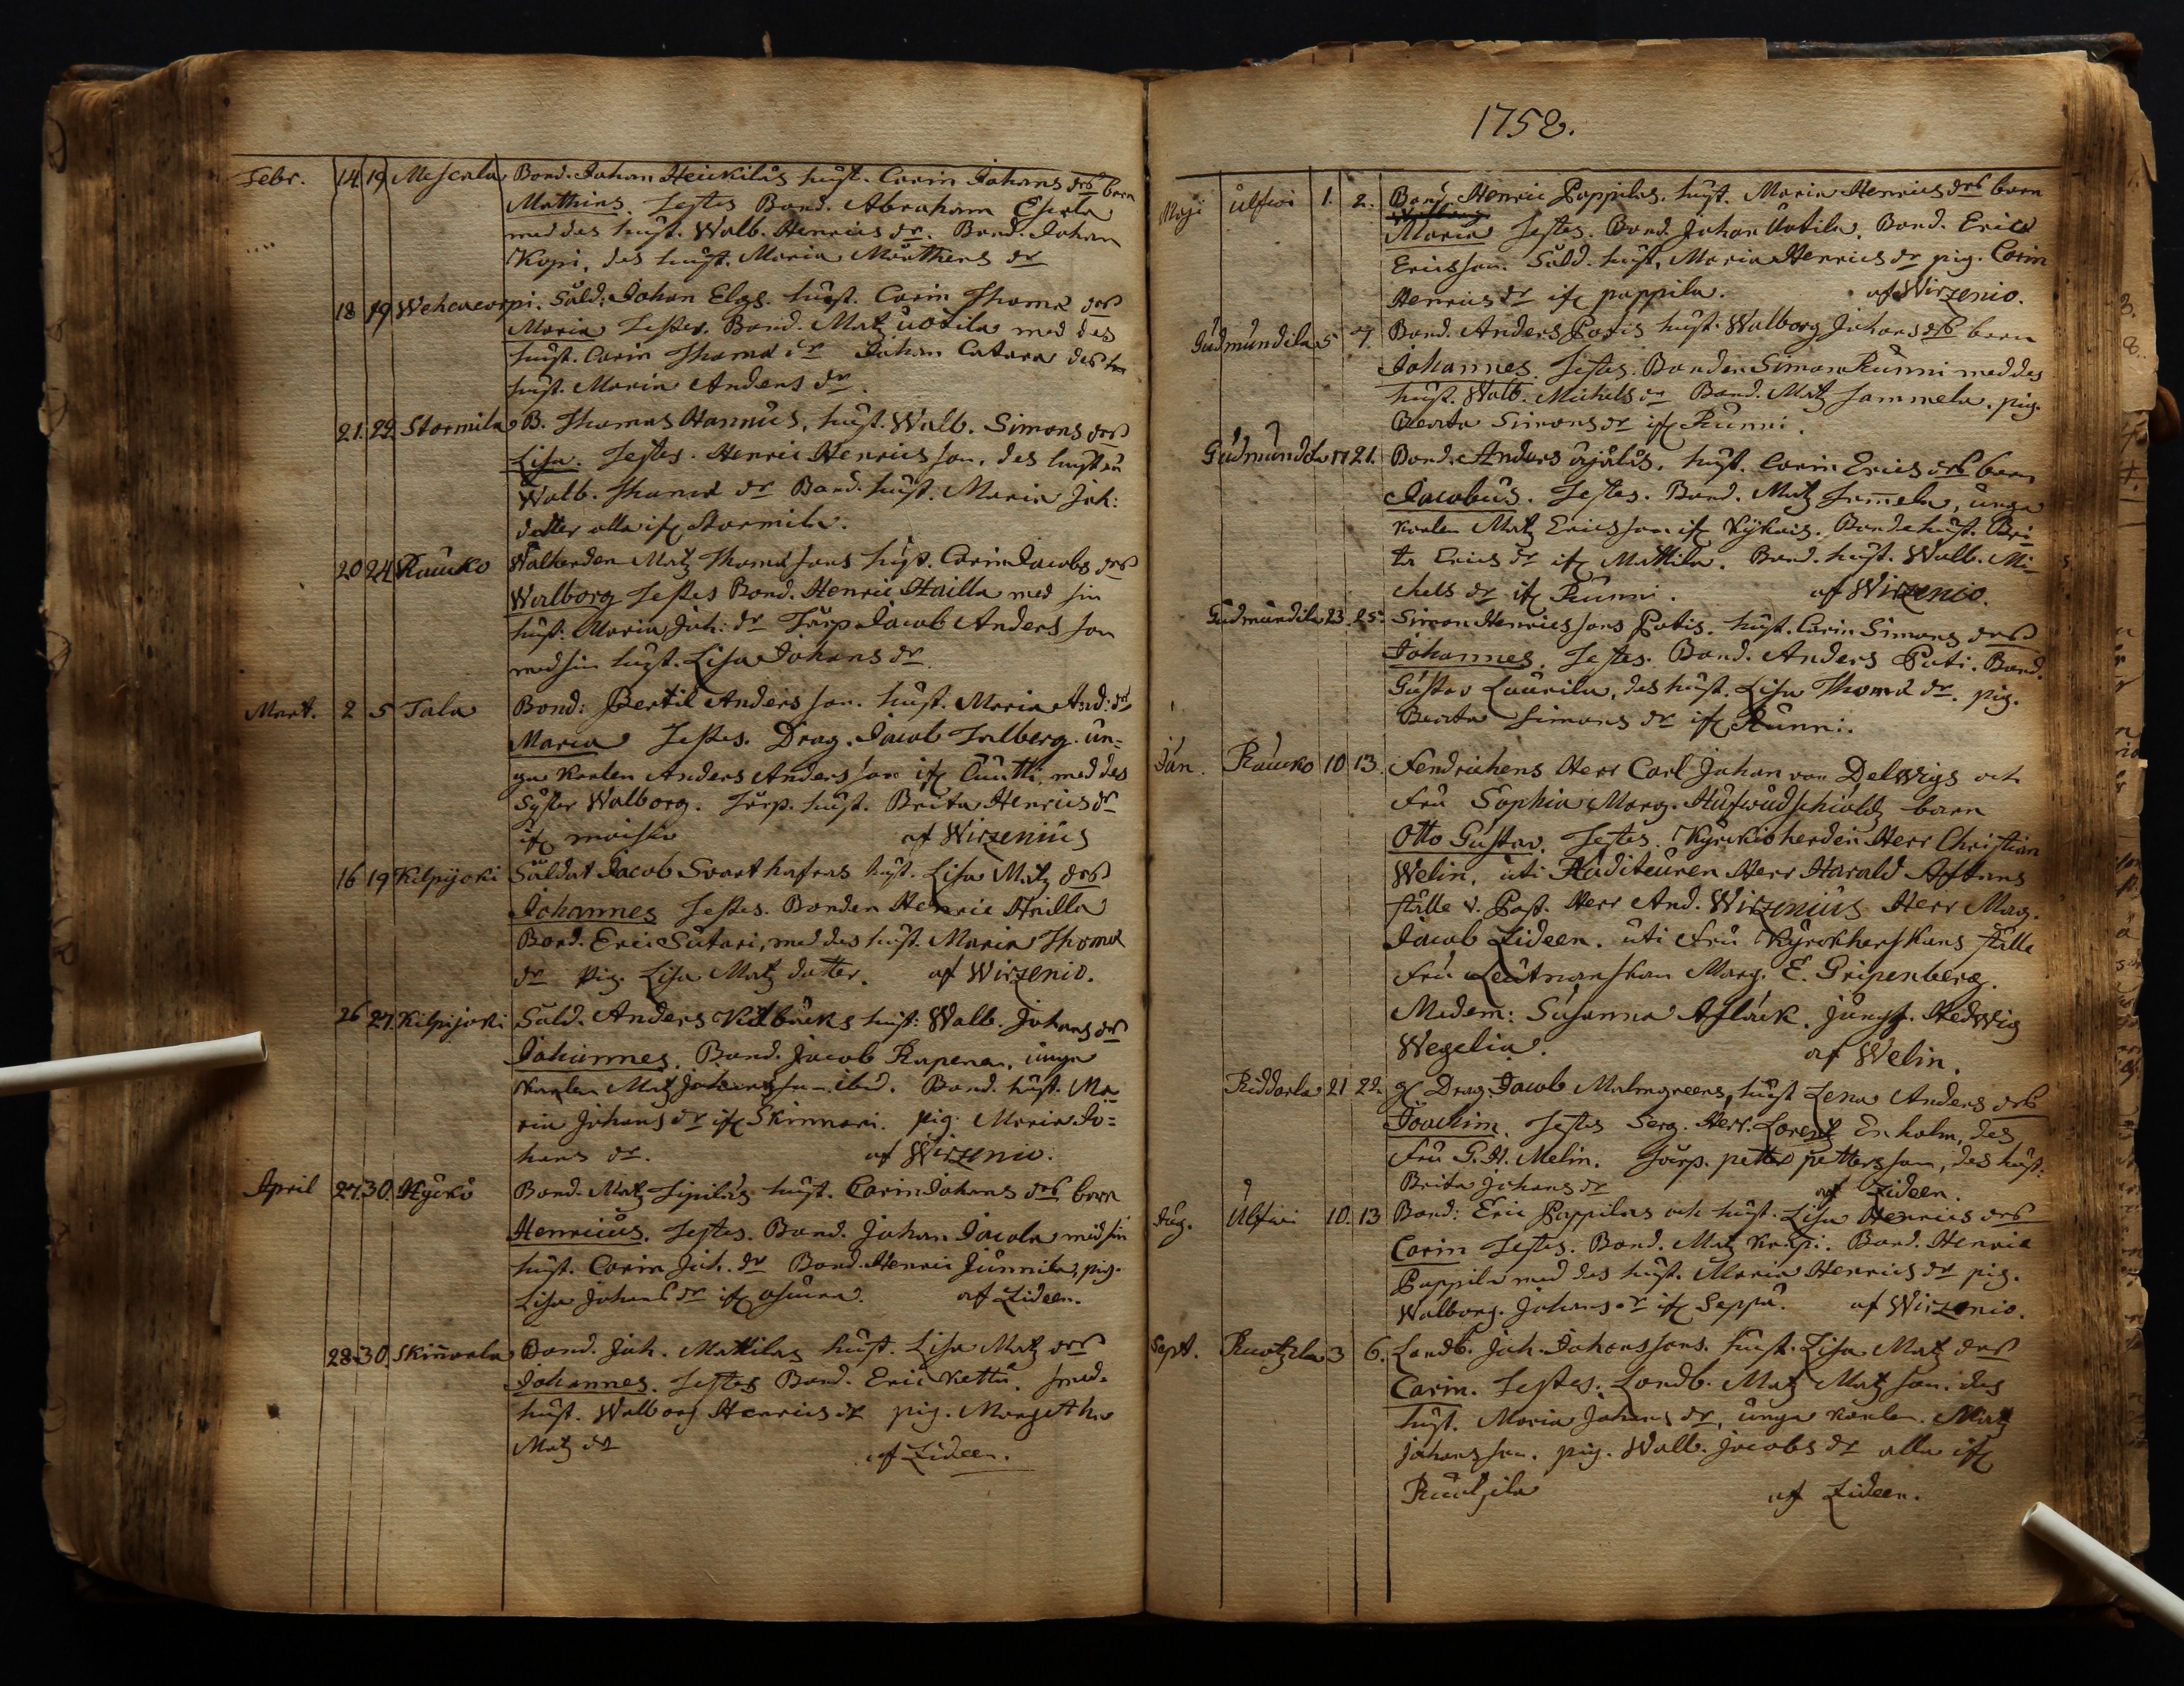 Febr. 14. 19 Meskala Bond. Johan Heickiläs hust. Carin Johans drs barn
Mathias. Testes Bond. Abraham Eskola
med des hust. Walb. Henrics dr. Bond. Johan
Kopi, des hust. Maria Mårthens dr
18 19 Wehcacorpi. Sold. Johan Elgs. hust. Carin Thomæ drs
Maria Testes. Bond. Matz Uotila med des
hust. Carin Thomæ dr Johan Catara des
hust. Maria Anders dr.
21. 22. Stormila B. Thomas Hannus, hust. Walb. Simons drs
Lisa. Testes. Henric Henricsson, des hustru
Walb. Thomæ dr Bond. hust. Maria Joh:
dotter alla ifr Stormila.
20 24 Raucko Wallherden Matz Thomæ sons hust. Carin Jacobs drs
Walborg Testes Bond. Henric Hailla med sin
hust. Maria Joh: dr Torp. Jacob Anders son
med sin hust. Lisa Johans dr.
Mart. 2 5 Tala Bond: Bertil Anders son. hust. Maria And: drs
Maria Testes. Drag. Jacob Talberg. un=
ga Karlen Anders Anders son ifr Cuutti, med des
Syster Walborg. Torp. hust. Brita Henrics dr
ifr moisio af Wirzenius
16 19 Kilpijoki Soldat Jacob Svarthafras hust. Lisa Matz drs
Johannes Testes. Bonden Henric Hailla
Bond. Eric Sutari, med des hust. Maria Thomæ
dr Pig. Lisa Matz dotter. af Wirzenio.
26 27. Kilpijoki Sold. Anders Kilbucks hust: Walb. Johans drs
Johannes. Bond. Jacob Rapena, unga
Karlen Matz Johansson ibid. Bond. hust. Ma
ria Johans dr ifr Skinnari. pig. Maria Jo=
hans dr. af Wirzenio.
April 27. 30. Hyckö Bond. Matz Sipiläs hust. Carin Johans drs barn
Henricus. Testes. Bond. Johan Jacola med sin
hust. Carin Joh. dr Bond. Henric Junnila, pig.
Lisa Johans dr ifr asuma. af Lideen.
28. 30. Skinnarla Bond. Joh. Mattilas hust. Lisa Matz drs
Johannes. Testes Bond. Eric Kettu. smed.
hust. Walborg Henrics dr pig. Margetha
Matz dr af Lideen.
1758.
Maji Ulfwi 1. 2. Bond. Henric Pappilas. hust. Maria Henrics drs barn
Maria Testes. Bond. Johan Uotila. Bond. Eric
Ericsson. Sold. hust. Maria Henrics dr pig. Carin
Henrics dr ifr pappila. af Wirzenio.
Gudmundila 5 7. Bond. Anders Potis hust. Walborg Johans drs barn
Johannes. Testes. Bonden Simon Runni med des
hust. Walb. Michels dr Bond. Matz Sammela. pig.
Beata Simons dr ifr Runni.
Gudmundila 17 21. Bond. Anders äjäläs. hust. Carin Erics drs barn
Jacobus. Testes. Bond. Matz Sammela, unga
karlen Matz Ericsson ifr Kykais. Bonde hust. Bri
ta Erics dr ifr Mattila. Bond. hust. Walb. Mi=
chels dr ifr Runni. af Wirzenio.
Gudmundila 23. 25. Simon Henricssons Potis. hust. Carin Simons drs
Johannes. Testes. Bond. Anders Poti. Bond.
Gustav Laurila, des hust. Lisa Thomæ dr. pig.
Beata Simons dr ifr Runni.
Jun. Raucko 10 13. Fendrichens Herr Carl Johan von Delwigs och
Fru Sophia Marg. Hufwudschiöldz barn
Otto Gustav. Testes. Kyrckioherden Herr Christian
Welin, uti Auditeuren Herr Harald
ställe v. Past. Herr And. Wirzenius Herr Mag.
Jacob Lideen. uti Fru Kyrckherskans ställe
Fru Leutnanskan Marg. E. Gripenberg.
Madem: Susanna Aflæck. jungf. Hedwig
Wegelia. af Welin.
Riddarla 21 22. Drag. Jacob Malmgreens, hust Lena Anders drs
Joachim. Testes Serg. Herr. Lorentz Enholm, des
Fru G. H. Melin. Torp. petter pettersson, des hust:
Brita Johans dr af Lideen.
Aug. Ulfwi 10. 13 Bond: Eric Pappilas och hust. Lisa Henrics drs
Carin Testes. Bond. Matz Knapi. Bond. Henric
Pappila med des hust. Maria Henrics dr pig.
Walborg. Johans dr ifr Seppä. af Wirzenio.
Sept. Ruotzila 3 6. Landb. Joh. Johanssons. hust. Lisa Matz drs
Carin. Testes. Landb. Matz Matz son. des
hust. Maria Johans dr, unga karlen. Matz
Johansson. pig. Walb. Jacobs dr alla ifr
Ruotzila af Lideen.